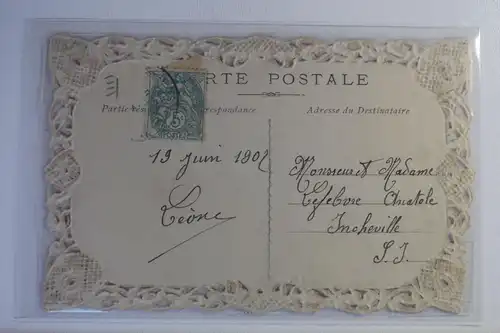 CARTE POSTALE
Partie réservée à la Correspondance
Adresse du Destinataire
19 Juin 1902
Léone
Monsieur et Madame
Lefebvre Anatole
Incheville
S. I.